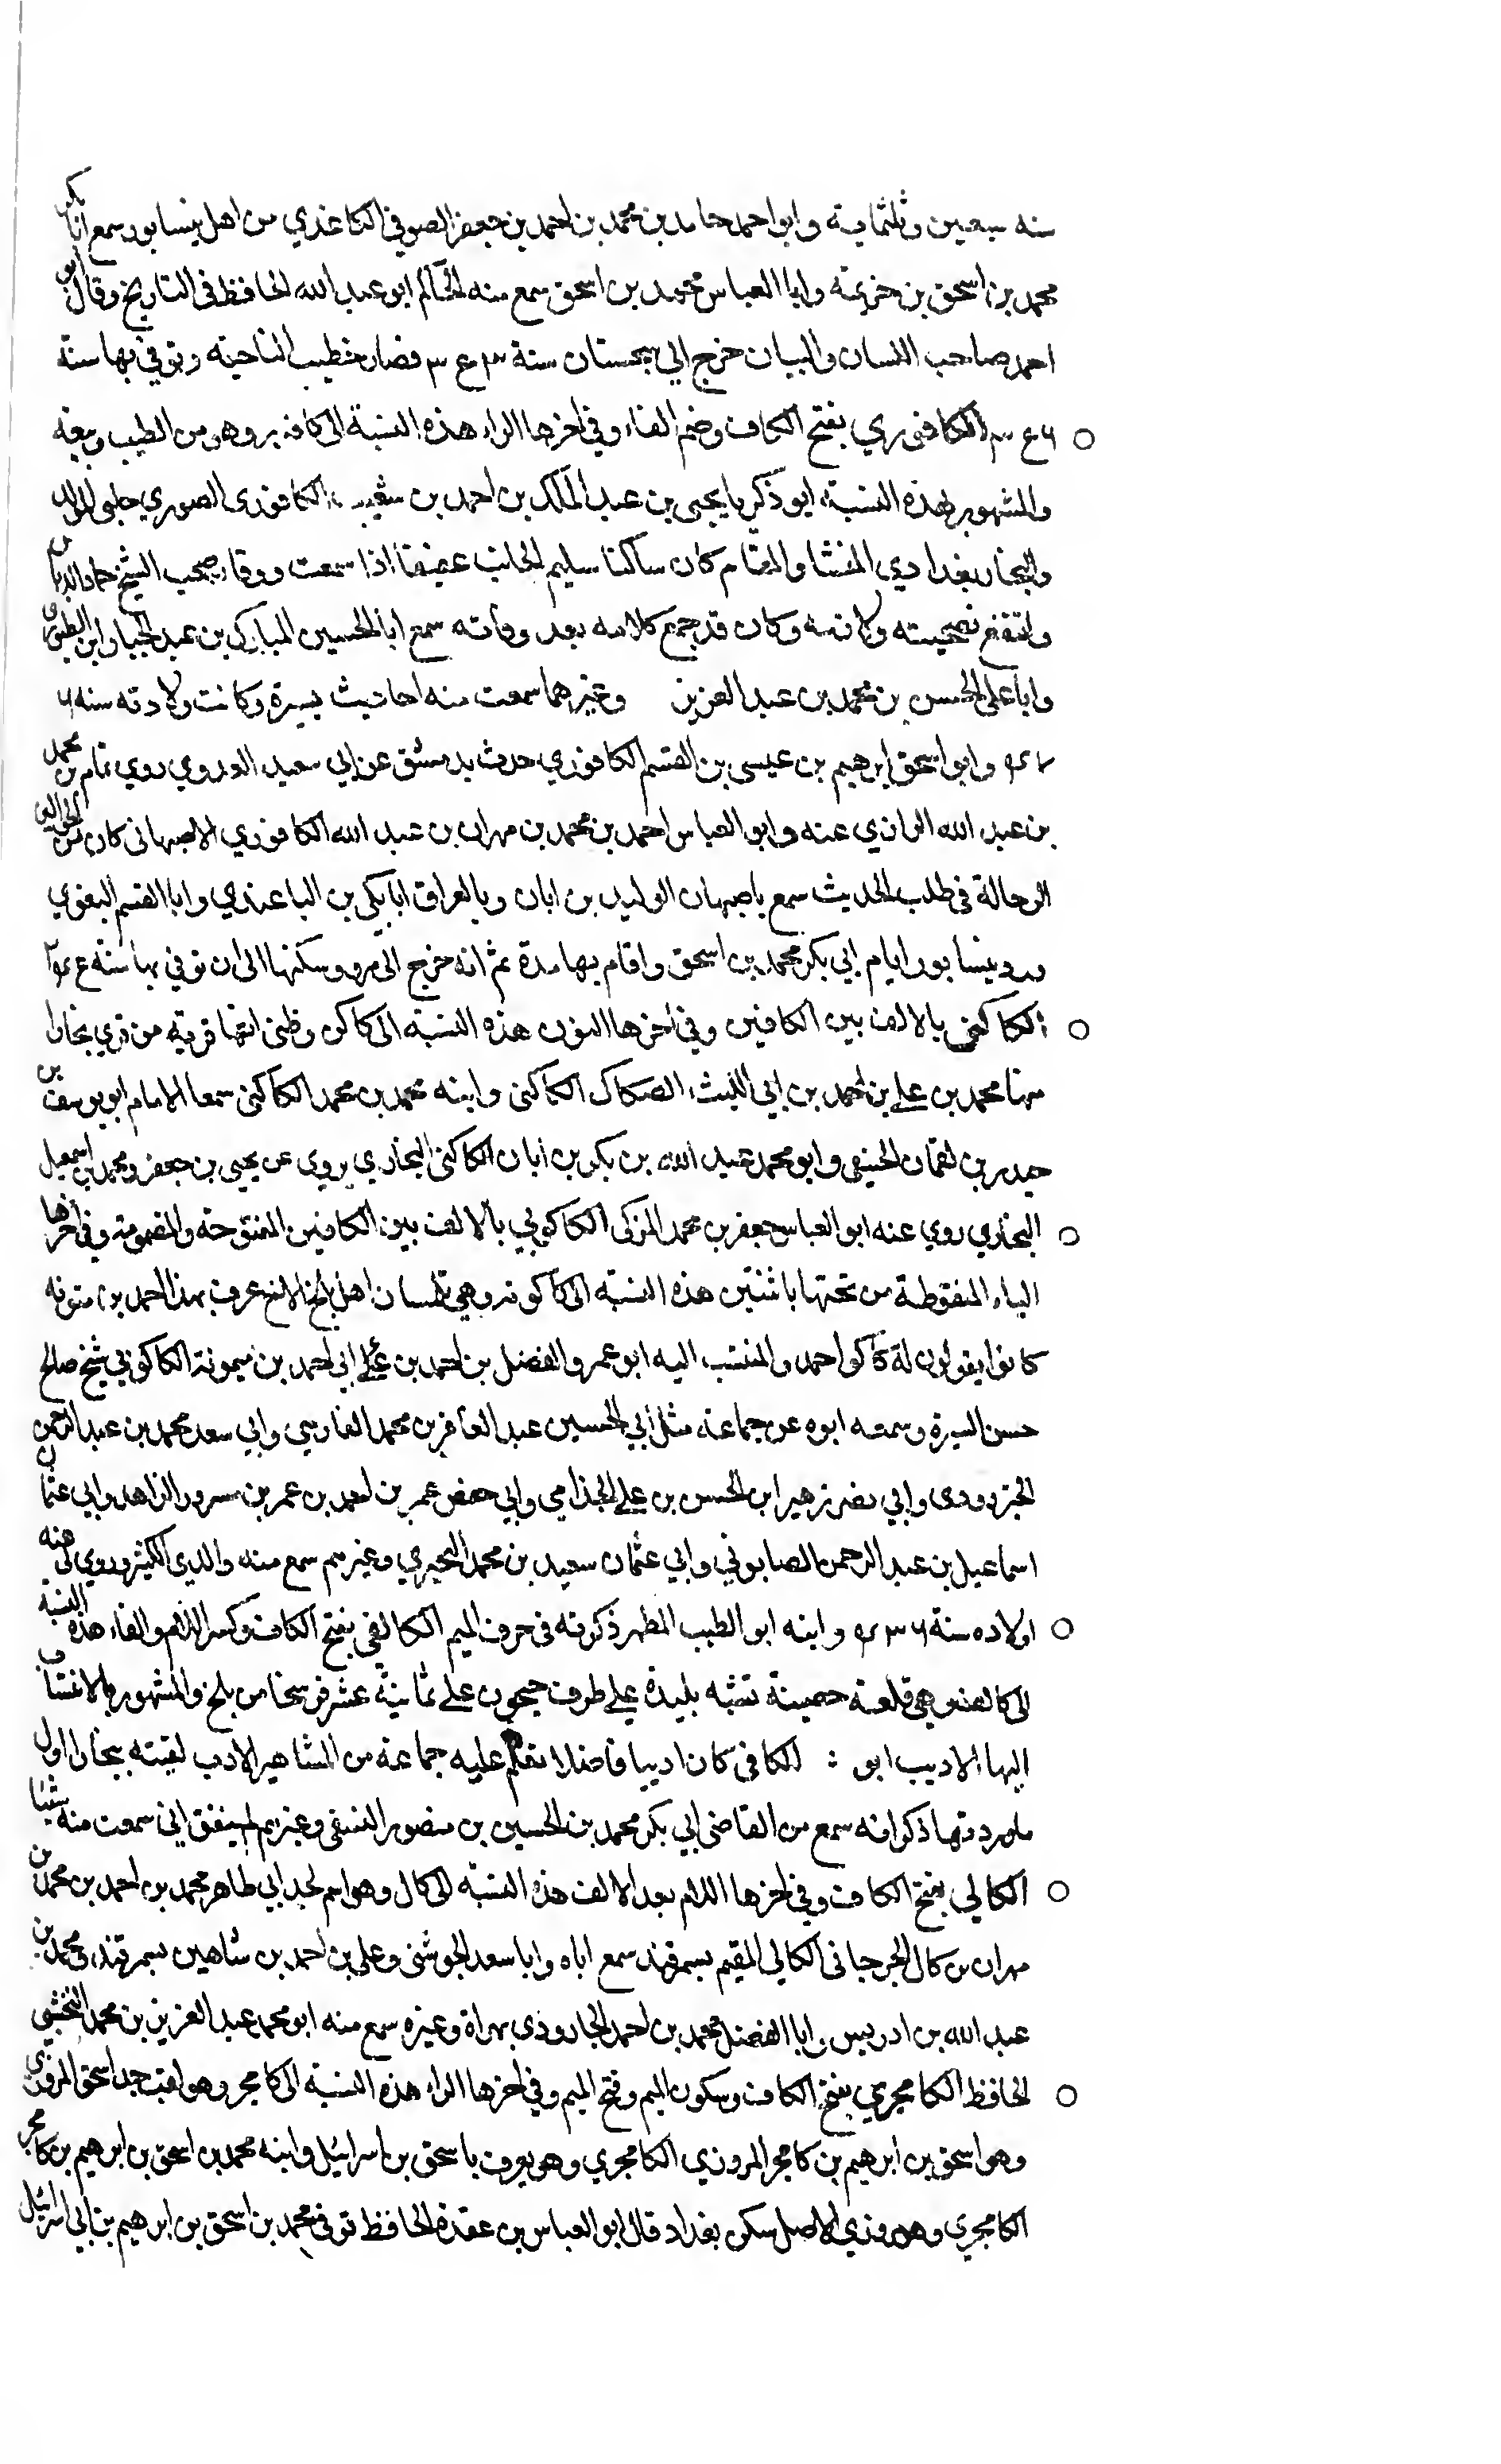 سنه سبعين وثلثماية وابو احمد حامد بن محمد بن احمد بن جعفر الصوفي الكاغذي من اهل نيسابور سمع ابا بكر
محمد بن اسحق بن خزيمة وابا العباس محمد بن اسحق سمع منه الحاكم ابو عبد الله الحافظ في التاريخ وقال ابو
احمد صاحب اللسان والبيان خرج الي سجستان سنة فصار خطيب الناحية وتوفي بها سنة
الكافوري بفتح الكاف وضم الفاء وفي اخرها الراء هذه النسبة الى كافور وهو من الطيب وبيعه
والمشهور بهذه النسبة ابو زكريا يحيى بن عبد الملك بن احمد بن شعيب الكافوري الصوري حلبى المولد
والنجار بغدادي المنشا والمقام كان ساكنا سليم الجانب عفيفا اذا سمعت ووقار صحب الشيخ حماد الدباس
وانتفع بصحبته ولازمه وكان قد جمع كلامه بعد وفاته سمع ابا الحسين المبارك بن عبد الجبار ابن الطيوري
وابا على الحسن بن محمد بن عبد العزيز وغيرهما سمعت منه احاديث يسيرة وكانت ولادته سنه
وابو اسحق ابرهيم بن عيسى بن القسم الكافوري حدث بدمشق عن ابي سعيد العدوي روي تمام بن محمد
بن عبد الله الرازي عنه وابو العباس احمد بن محمد بن مهران بن عبد الله الكافوري الاصبهانى كان من الجوالين
الرحالة في طلب الحديث سمع باصبهان الوليد بن ابان وبالعراق ابا بكر بن الباغندي وابا القسم البغوي
ورد نيسابور ايام ابي بكر محمد بن اسحق واقام بها مدة ثم انه خرج الى مرو وسكنها الى ان توفي بها سنه
الكاكني بالالف بين الكافين وفي اخرها النون هذه النسبة الى كاكن وظني انها قرية من قري بخارا
منها محمد بن علي بن احمد بن ابي الليث الصكاك الكاكني وابنه محمد بن محمد الكاكني سمعا الامام ابو يوسف بن
حيدر بن لقمان الحنيفى وابو محمد عبد الله بن بكر بن ابان الكاكني البخاري يروي عن يحيى بن جعفر ومحمد بن اسمعيل
البخاري روي عنه ابو العباس جعفر بن محمد المزكى الكاكويي بالالف بين الكافين المفتوحة والمضمومة وفي اخرها
الياء المنقوطة من تحتها باثنتين هذه النسبة الى كاكويه وهي بلسان اهل بلخ الاخ عرف بهذا احمد بن متويه
كانوا يقولون له كاكو احمد والمنتسب اليه ابو عمرو الفضل بن احمد بن علي ابي احمد بن ميمونة الكاكويي شيخ صالح
حسن السيرة وسمعه ابوه عن جماعة مثل ابي الحسين عبد الغافر بن محمد الفارسي وابي سعد محمد بن عبد الرحمن
الجنزرودى وابي نصر زهير ابن الحسن بن علي الجذامي وابي حفص عمر بن احمد بن عمر بن مسرور الزاهد وابي عثمان
اسماعيل بن عبد الرحمن الصابوني وابي عثمان سعيد بن محمد البحيري وغيرهم سمع منه والدي الكثير وروي لي عنه
اولاده سنة وابنه ابو الطيب المطهر ذكرته في حرف الميم الكالفي بفتح الكاف وكسر اللام والفاء هذه النسبة
الى كالف وهي قلعة حصينة تشبه بليدة علي طرف جيحون على ثمانية عشر فرسخا من بلخ والمشهور بالانتساب
اليها الاديب ابو : الكافي كان اديبا فاضلا تعلم عليه جماعة من المشاهير الادب لقيته ببخارا اول
ما وردتها ذكر انه سمع من القاضي ابي بكر محمد بن الحسين بن منصور النسفي وغيرهم لم يتفق اني سمعت منه شيئا
الكالي بفتح الكاف وفي اخرها اللام بعد الالف هذه النسبة الى كال وهو اسم لجد ابي طاهر محمد بن احمد بن محمد بن
مهران بن كال الجرجانى الكالي المقيم بسمرقند سمع اباه وابا سعد الجوشني وعلى بن احمد بن شاهين بسمرقند ومحمد بن
عبد الله بن ادريس وابا الفضل محمد بن احمد الجارودي بهراة وغيره سمع منه ابو محمد عبد العزيز بن محمد النخشبي
الحافظ الكامجري بفتح الكاف وسكون الميم وفتح الميم وفي اخرها الراء هذه النسبة الى كامجر وهو لقب جد اسحق المروزي
وهو اسحق بن ابرهيم بن كامجر المروزي الكامجري وهو يعرف باسحق بن اسرائيل وابنه محمد بن اسحق بن ابرهيم بن كامجر
الكامجري وهو مروزي الاصل سكن بغداد قال ابو العباس بن عقدة الحافظ توفي محمد بن اسحق بن ابرهيم بن ابي اسرائيل